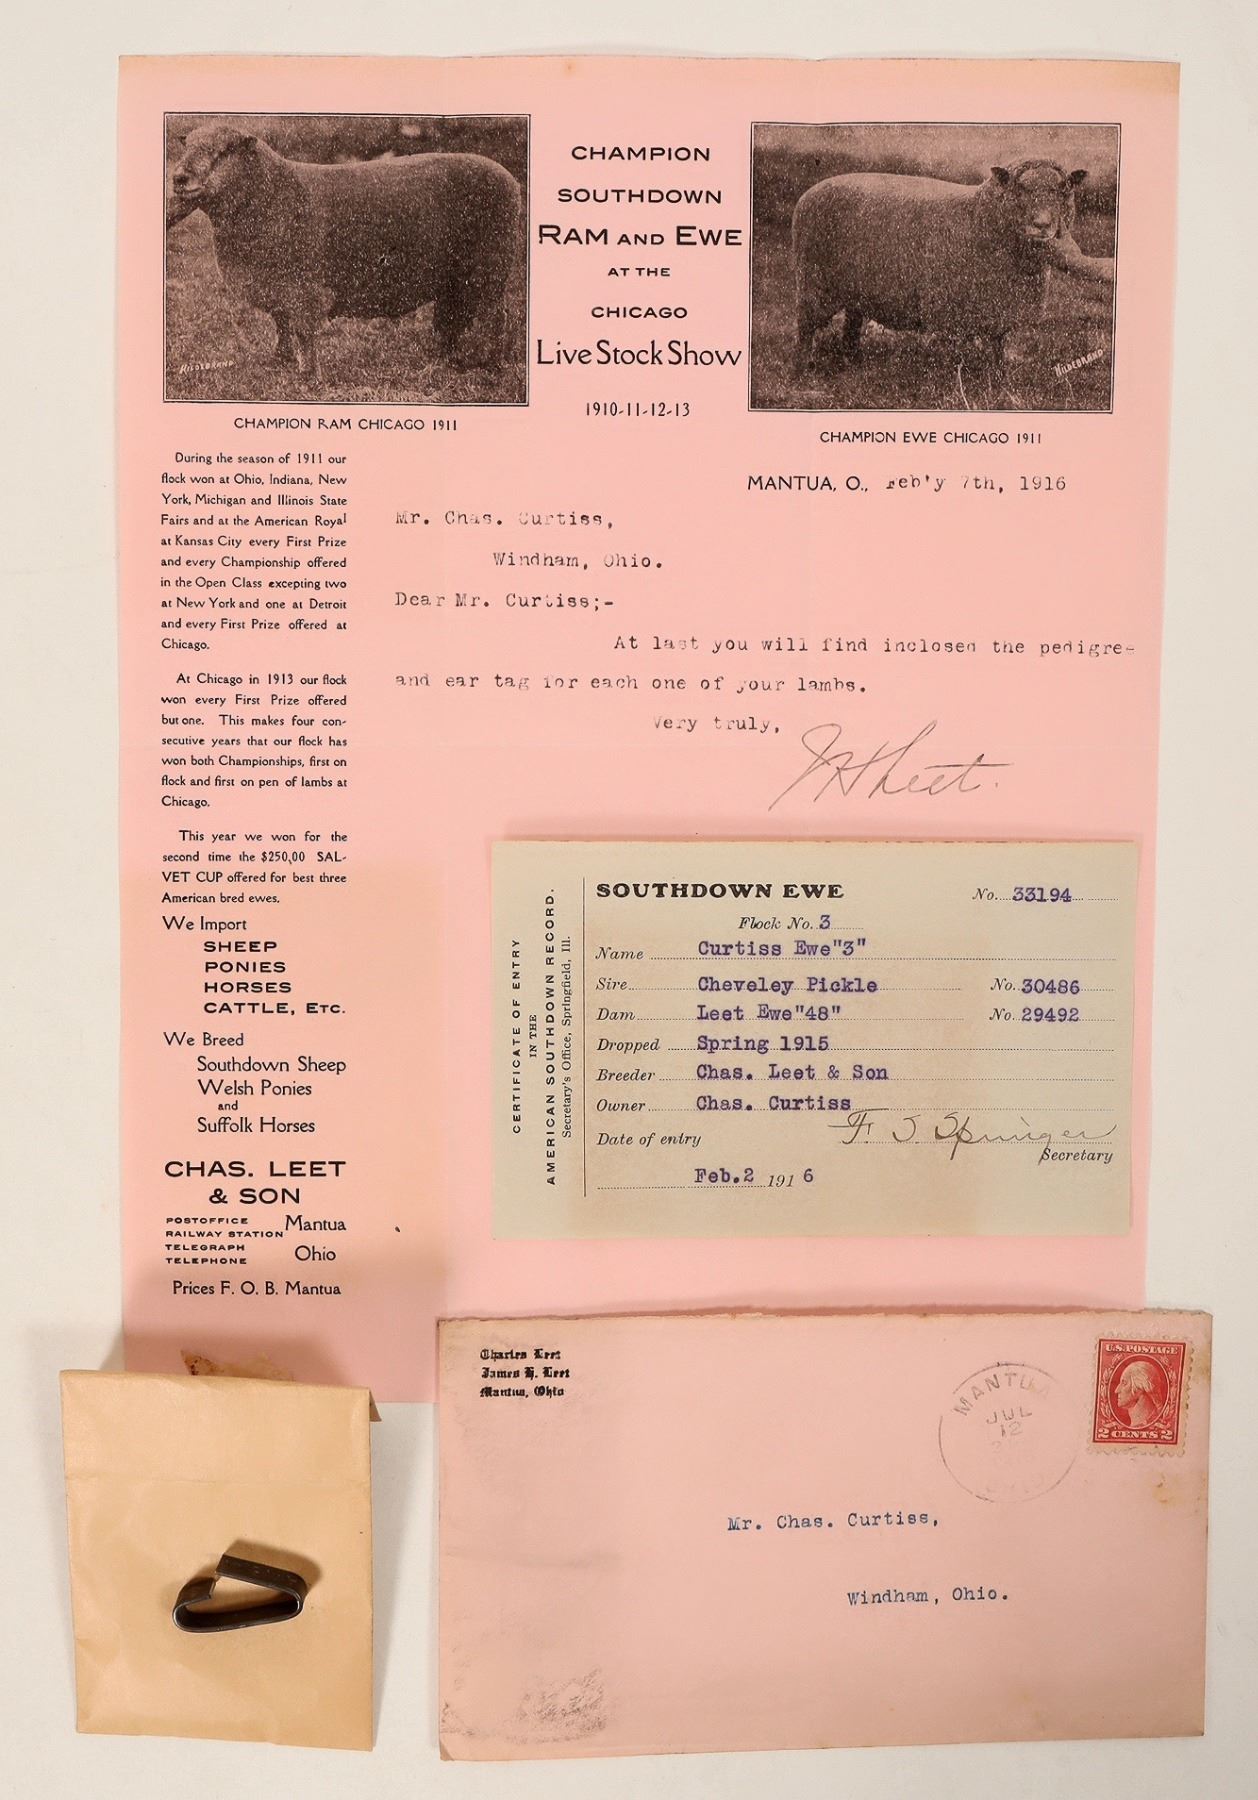 CHAMPION
SOUTHDOWN
RAM AND EWE
AT THE
CHICAGO
Live Stock Show
1910-11-12-13
HILDEBRAND
HILDEBRAND
CHAMPION RAM CHICAGO 1911
CHAMPION EWE CHICAGO 1911
During the season of 1911 our
flock won at Ohio, Indiana, New
York, Michigan and Illinois State
Fairs and at the American Royal
at Kansas City every First Prize
and every Championship offered
in the Open Class excepting two
at New York and one at Detroit
and every First Prize offered at
Chicago.
At Chicago in 1913 our flock
won every First Prize offered
but one. This makes four con-
secutive years that our flock has
won both Championships, first on
flock and first on pen of lambs at
Chicago.
This year we won for the
second time the $250,00 SAL-
VET CUP offered for best three
American bred ewes.
We Import
SHEEP
PONIES
HORSES
CATTLE, ETC.
We Breed
Southdown Sheep
Welsh Ponies
and
Suffolk Horses
CHAS. LEET
& SON
POSTOFFICE
RAILWAY STATION
TELEGRAPH
TELEPHONE
Mantua
Ohio
Prices F. O. B. Mantua
MANTUA, O., Feb'y 7th, 1916
Mr. Chas. Curtiss,
Windham, Ohio.
Dear Mr. Curtiss;-
At last you will find inclosed the pedigree
and ear tag for each one of your lambs.
Very truly,
J H Leet.
CERTIFICATE OF ENTRY
IN THE
AMERICAN SOUTHDOWN RECORD.
Secretary's Office, Springfield, Ill.
SOUTHDOWN EWE No. 33194
Flock No. 3
Name Curtiss Ewe"3"
Sire Cheveley Pickle No. 30486
Dam Leet Ewe"48" No. 29492
Dropped Spring 1915
Breeder Chas. Leet & Son
Owner Chas. Curtiss
Date of entry F. J. Springer
Secretary
Feb.2 1916
Charles Leet
James H. Leet
Mantua, Ohio
MANTUA
JUL
12
OHIO
U.S. POSTAGE
2 CENTS 2
Mr. Chas. Curtiss,
Windham, Ohio.